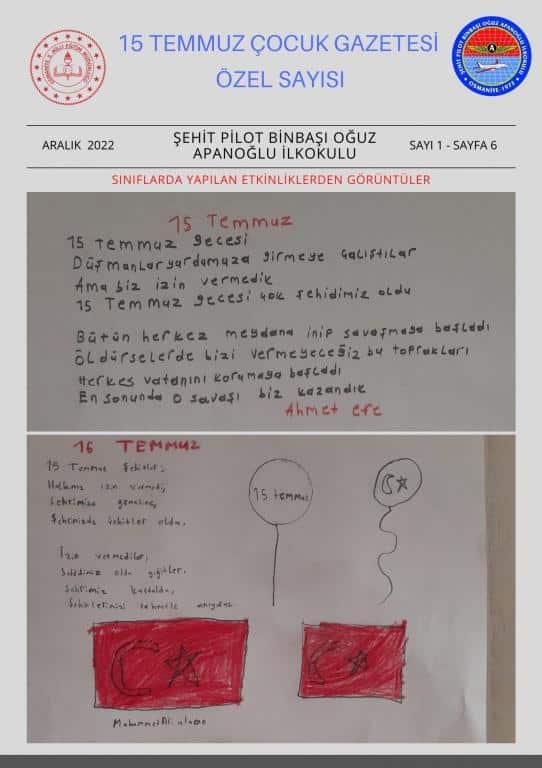 15 TEMMUZ ÇOCUK GAZETESİ
ÖZEL SAYISI
ŞEHİT PİLOT BİNBAŞI OĞUZ APANOĞLU İLKOKULU
OSMANİYE-1973
ARALIK 2022
ŞEHİT PİLOT BİNBAŞI OĞUZ
APANOĞLU İLKOKULU
SAYI 1 - SAYFA 6
SINIFLARDA YAPILAN ETKİNLİKLERDEN GÖRÜNTÜLER
15 Temmuz
15 Temmuz gecesi
Düşmanlar yurdumuza girmeye çalıştılar
Ama biz izin vermedik
15 Temmuz gecesi çok şehidimiz oldu
Bütün herkez meydana inip savaşmaya başladı
Öldürselerde bizi vermeyeceğiz bu toprakları
Herkes vatanını korumaya başladı
En sonunda o savaşı biz kazandık
Ahmet efe
16 TEMMUZ
15 Temmuz
Halkımız izin vermedi,
Şehrimize
Şehrimizde şehitler oldu,
15 temmuz
İzin vermediler,
oldu yiğitler,
Şehrimiz kurtuldu,
Şehitlerimizi rahmetle
Muhammed Ali